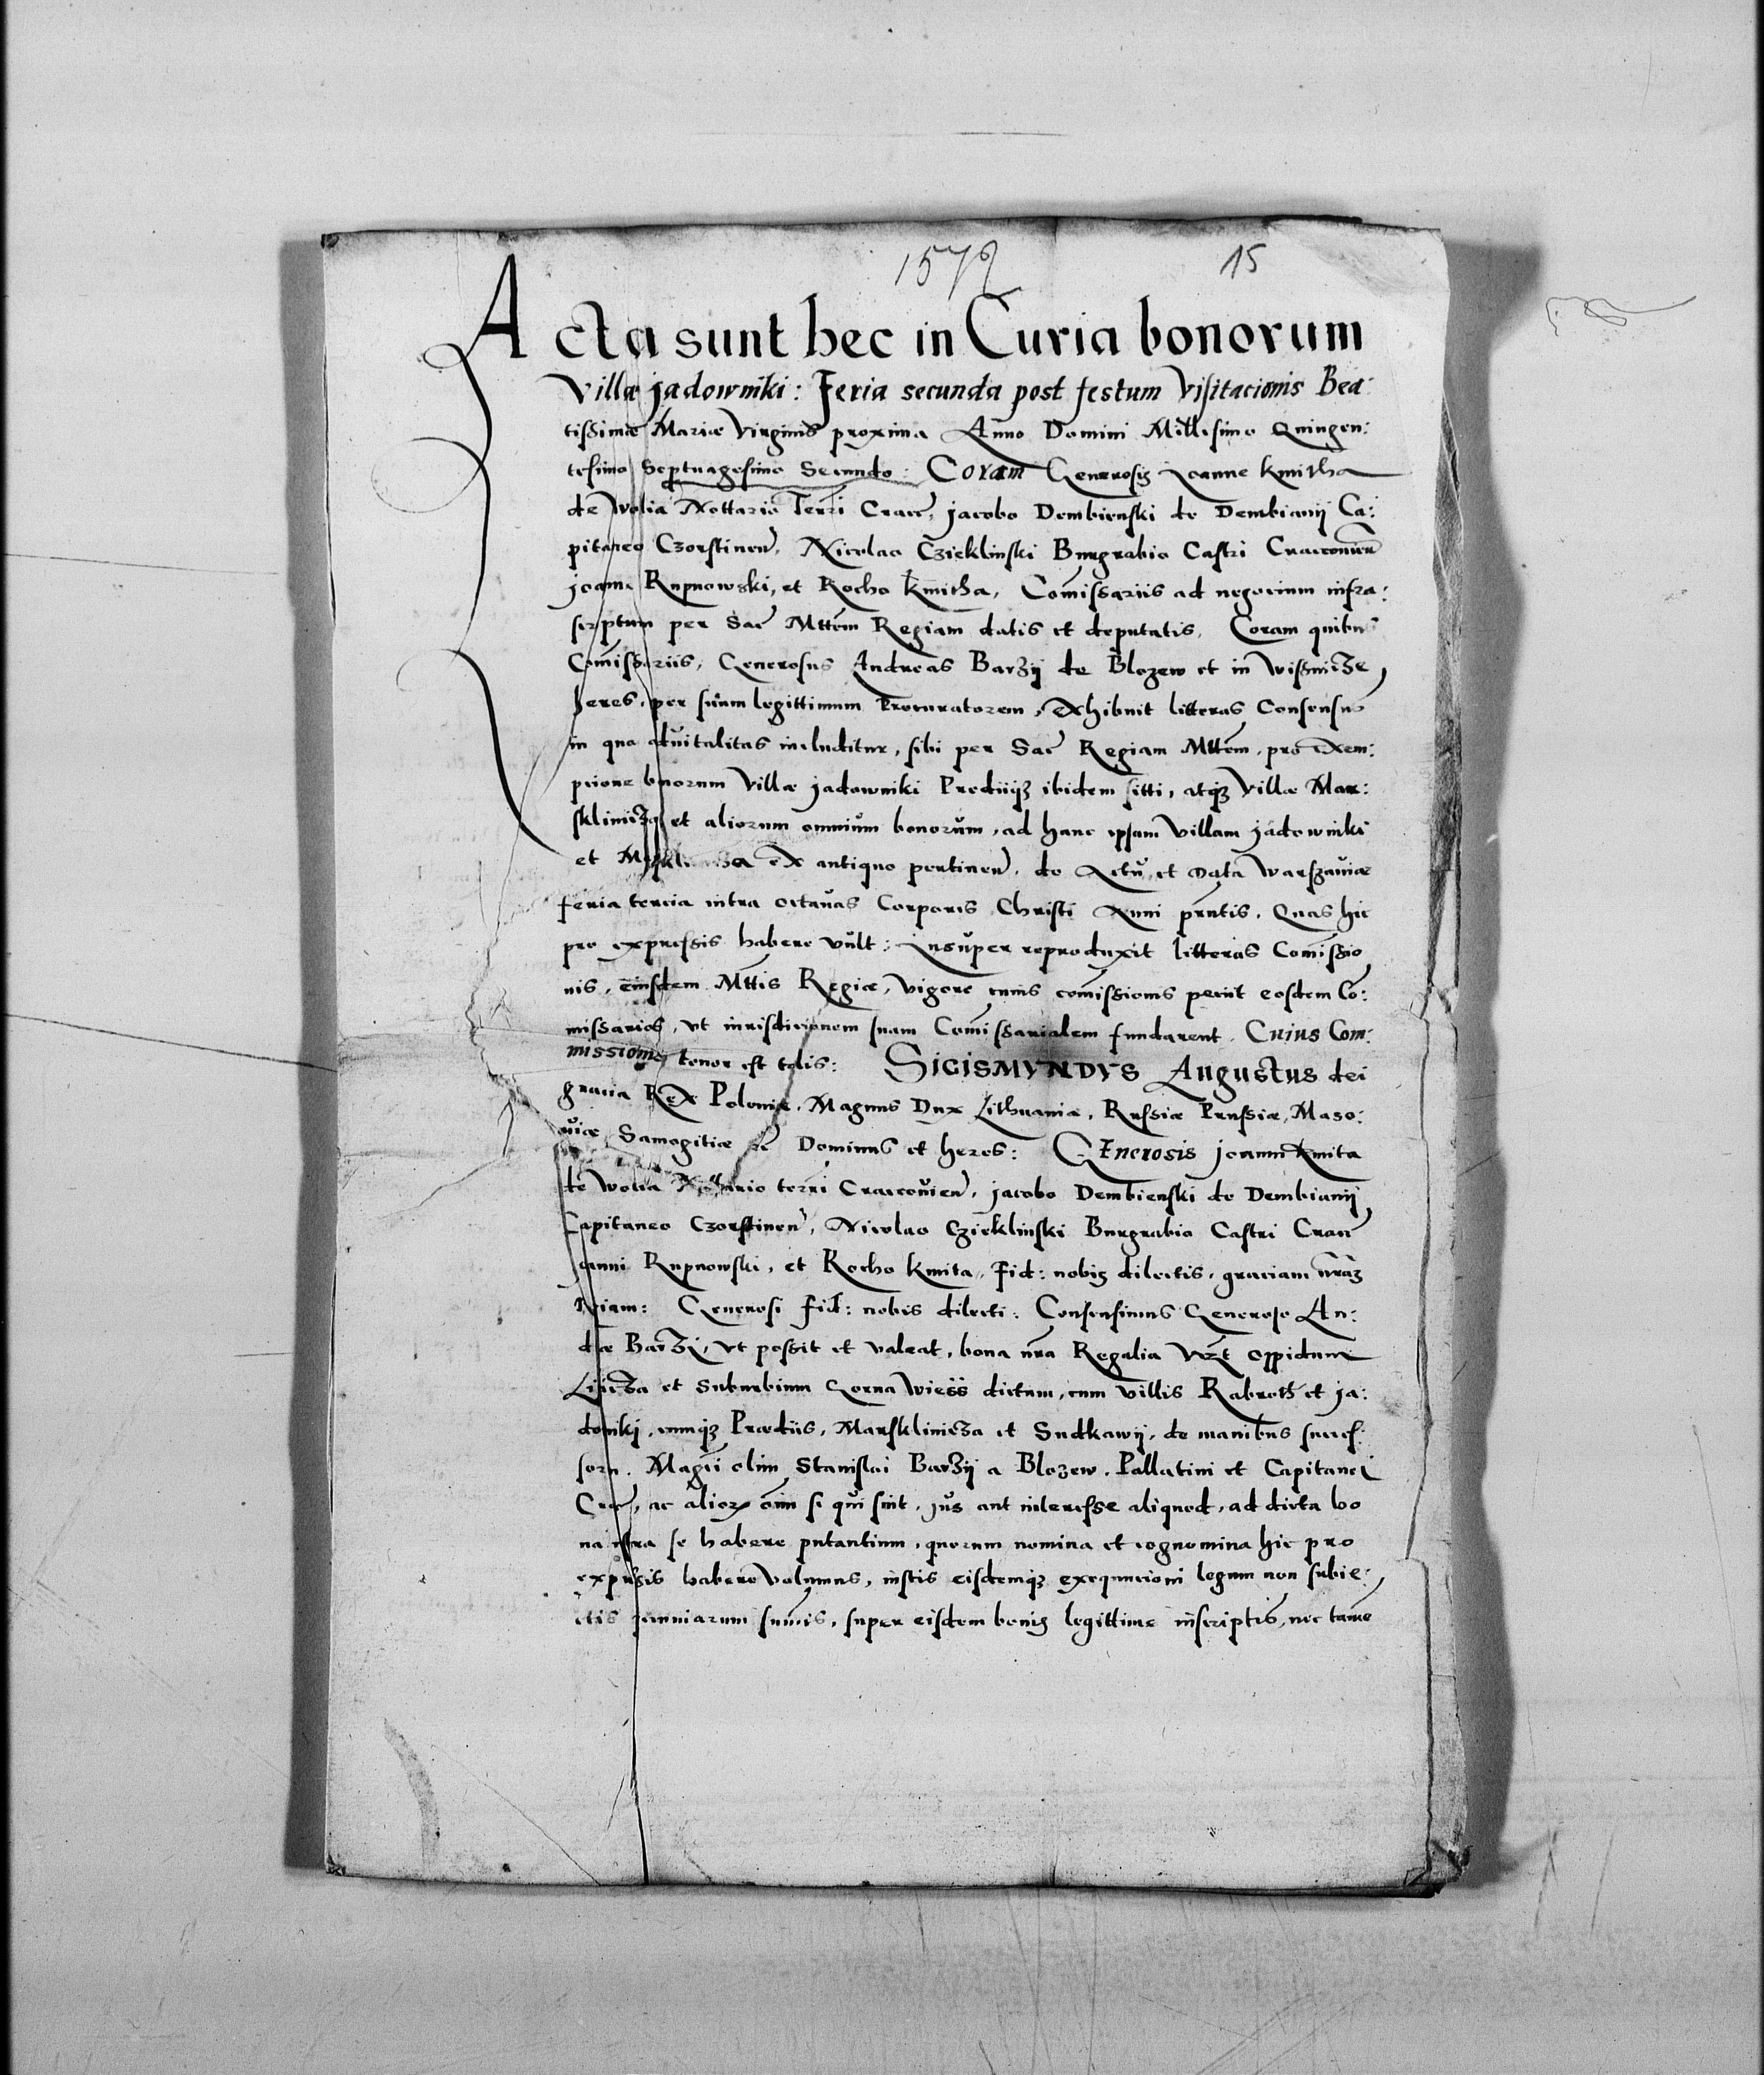 1572 15
Acta sunt hec in Curia bonorum
Villæ jadowniki: Feria secunda post festum Visitacionis Bea:
tissimæ Mariæ Virginis proxima Anno Domini Millesimo Quingen:
tesimo Septuagesimo Secundo: Coram Generosis Joanne kmitha
de Wolia Nottario Terri Cracc, jacobo Dembienski de Dembianij Ca:
pitaneo Czorstinen, Nicolao Czieklinski Burgrabio Castri Cracovien
joanne Rupnowski, et Rocho kmitha, Comissariis ad negocium infra:
scriptum per Sac Mttem Regiam datis et deputatis, Coram quibus
Comissariis, Generosus Andreas Barzij de Blozew et in Wissnicze
heres, per suum legittimum Procuratorem, Exhibuit litteras Consensus
in quo advitalitas includitur, sibi per Sac Regiam Mttem, pro Exem:
pcione bonorum Villæ jadowniki Prediiqz ibidem sitti, atqz Villæ Mar:
sklinicza et aliorum omnium bonorum, ad hanc ipsam villam jadowniki
et ex antiquo pertinen, de Actu et Data Warszaviæ
feria tercia intra octavas Corporis Christi Anni pntis. Quas hic
pro expressis habere vult: Insuper reproduxit litteras Comissio
nis, eiusdem Mttis Regiæ, vigore cuius comissionis peciit eosdem Co:
missarios, ut iurisdicionem suam Comissarialem fundarent. Cuius Com:
missionis tenor est talis: SIGISMVNDVS Augustus dei
gracia Rex Poloniæ, Magnus Dux Lithuaniæ, Russiæ Prussiæ, Maso:
viæ, Samogitiæ Dominus et heres: GEnerosis joanni kmita
de Wolia Nottario terri Cracovien, jacobo Dembienski de Dembianij
Capitaneo Czorstinen, Nicolao Czieklinski Burgrabio Castri Cracc
joanni Rupnowski, et Rocho kmita, Fid: nobis dilectis, graciam nram
Regiam: Generosi fid: nobis dilecti. Consensimus Generoso An:
dræ Barzi, ut possit et valeat, bona nra Regalia Vzt Oppidum
Lipicza et Suburbium Gorna Wiess dictum, cum villis Rabroth et ja:
downiki, cumqz Prædiis, Marsklinicza et Sudkawij, de manibus succes:
sorum. Magci olim Stanislai Barzij a Blozew, Pallatini et Capitanei
Cracc, ac alior oim si qui sint, jus aut interesse aliquod, ad dicta bo
na nostra se habere putantium, quorum nomina et cognomina hic pro
expressis habere volumus, iustis eisdemqz exequucioni legum non subie:
ctis pecuniarum sumis, super eisdem bonis legittime inscriptis, nec tame